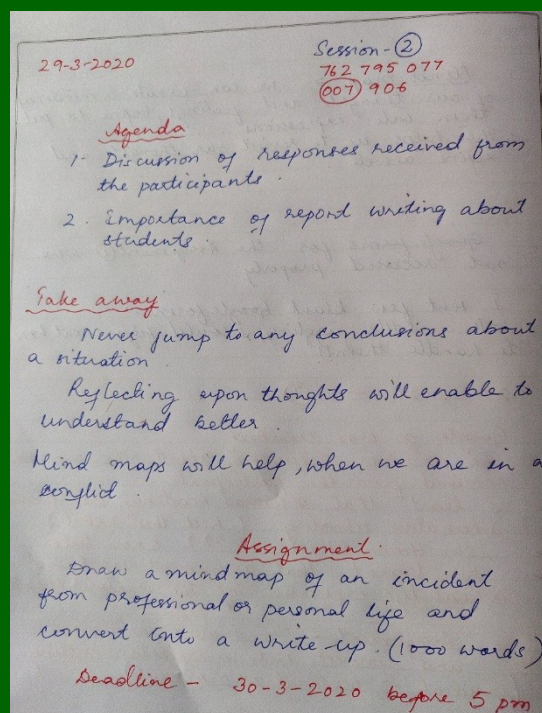 29-3-2020
Session - 2
762 795 077
007 906
Agenda
1. Discussion of responses received from
the participants.
2. Importance of report writing about
students.
Take away
Never jump to any conclusions about
a situation.
Reflecting upon thoughts will enable to
understand better.
Mind maps will help, when we are in a
conflict.
Assignment.
Draw a mind map of an incident
from professional or personal life and
convert into a write-up. (1000 words)
Deadline - 30-3-2020 before 5 pm